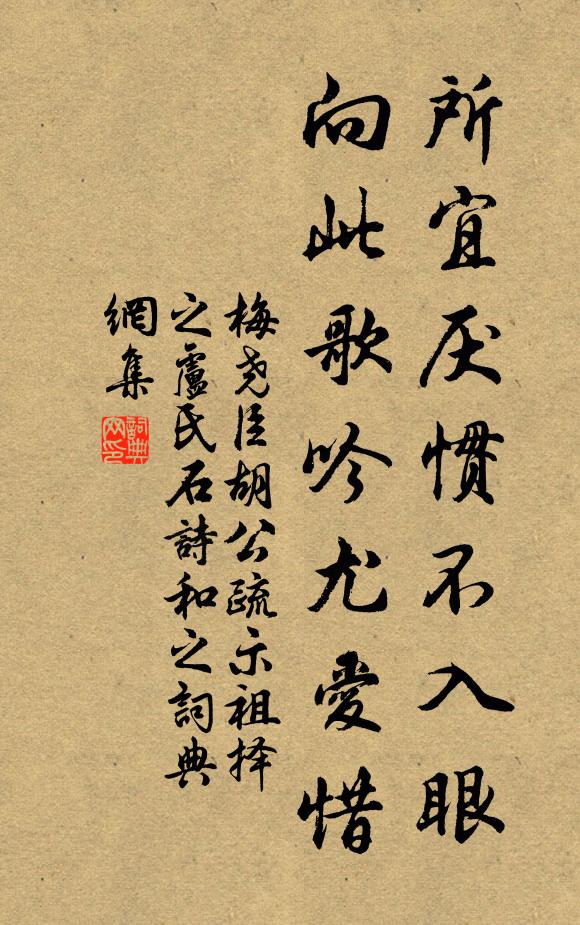 所宜厌惯不入眼
向此歌吟尤愛惜
梅尧臣胡公疏示祖择
之盧氏石詩和之詞典
網集
詞典
网印